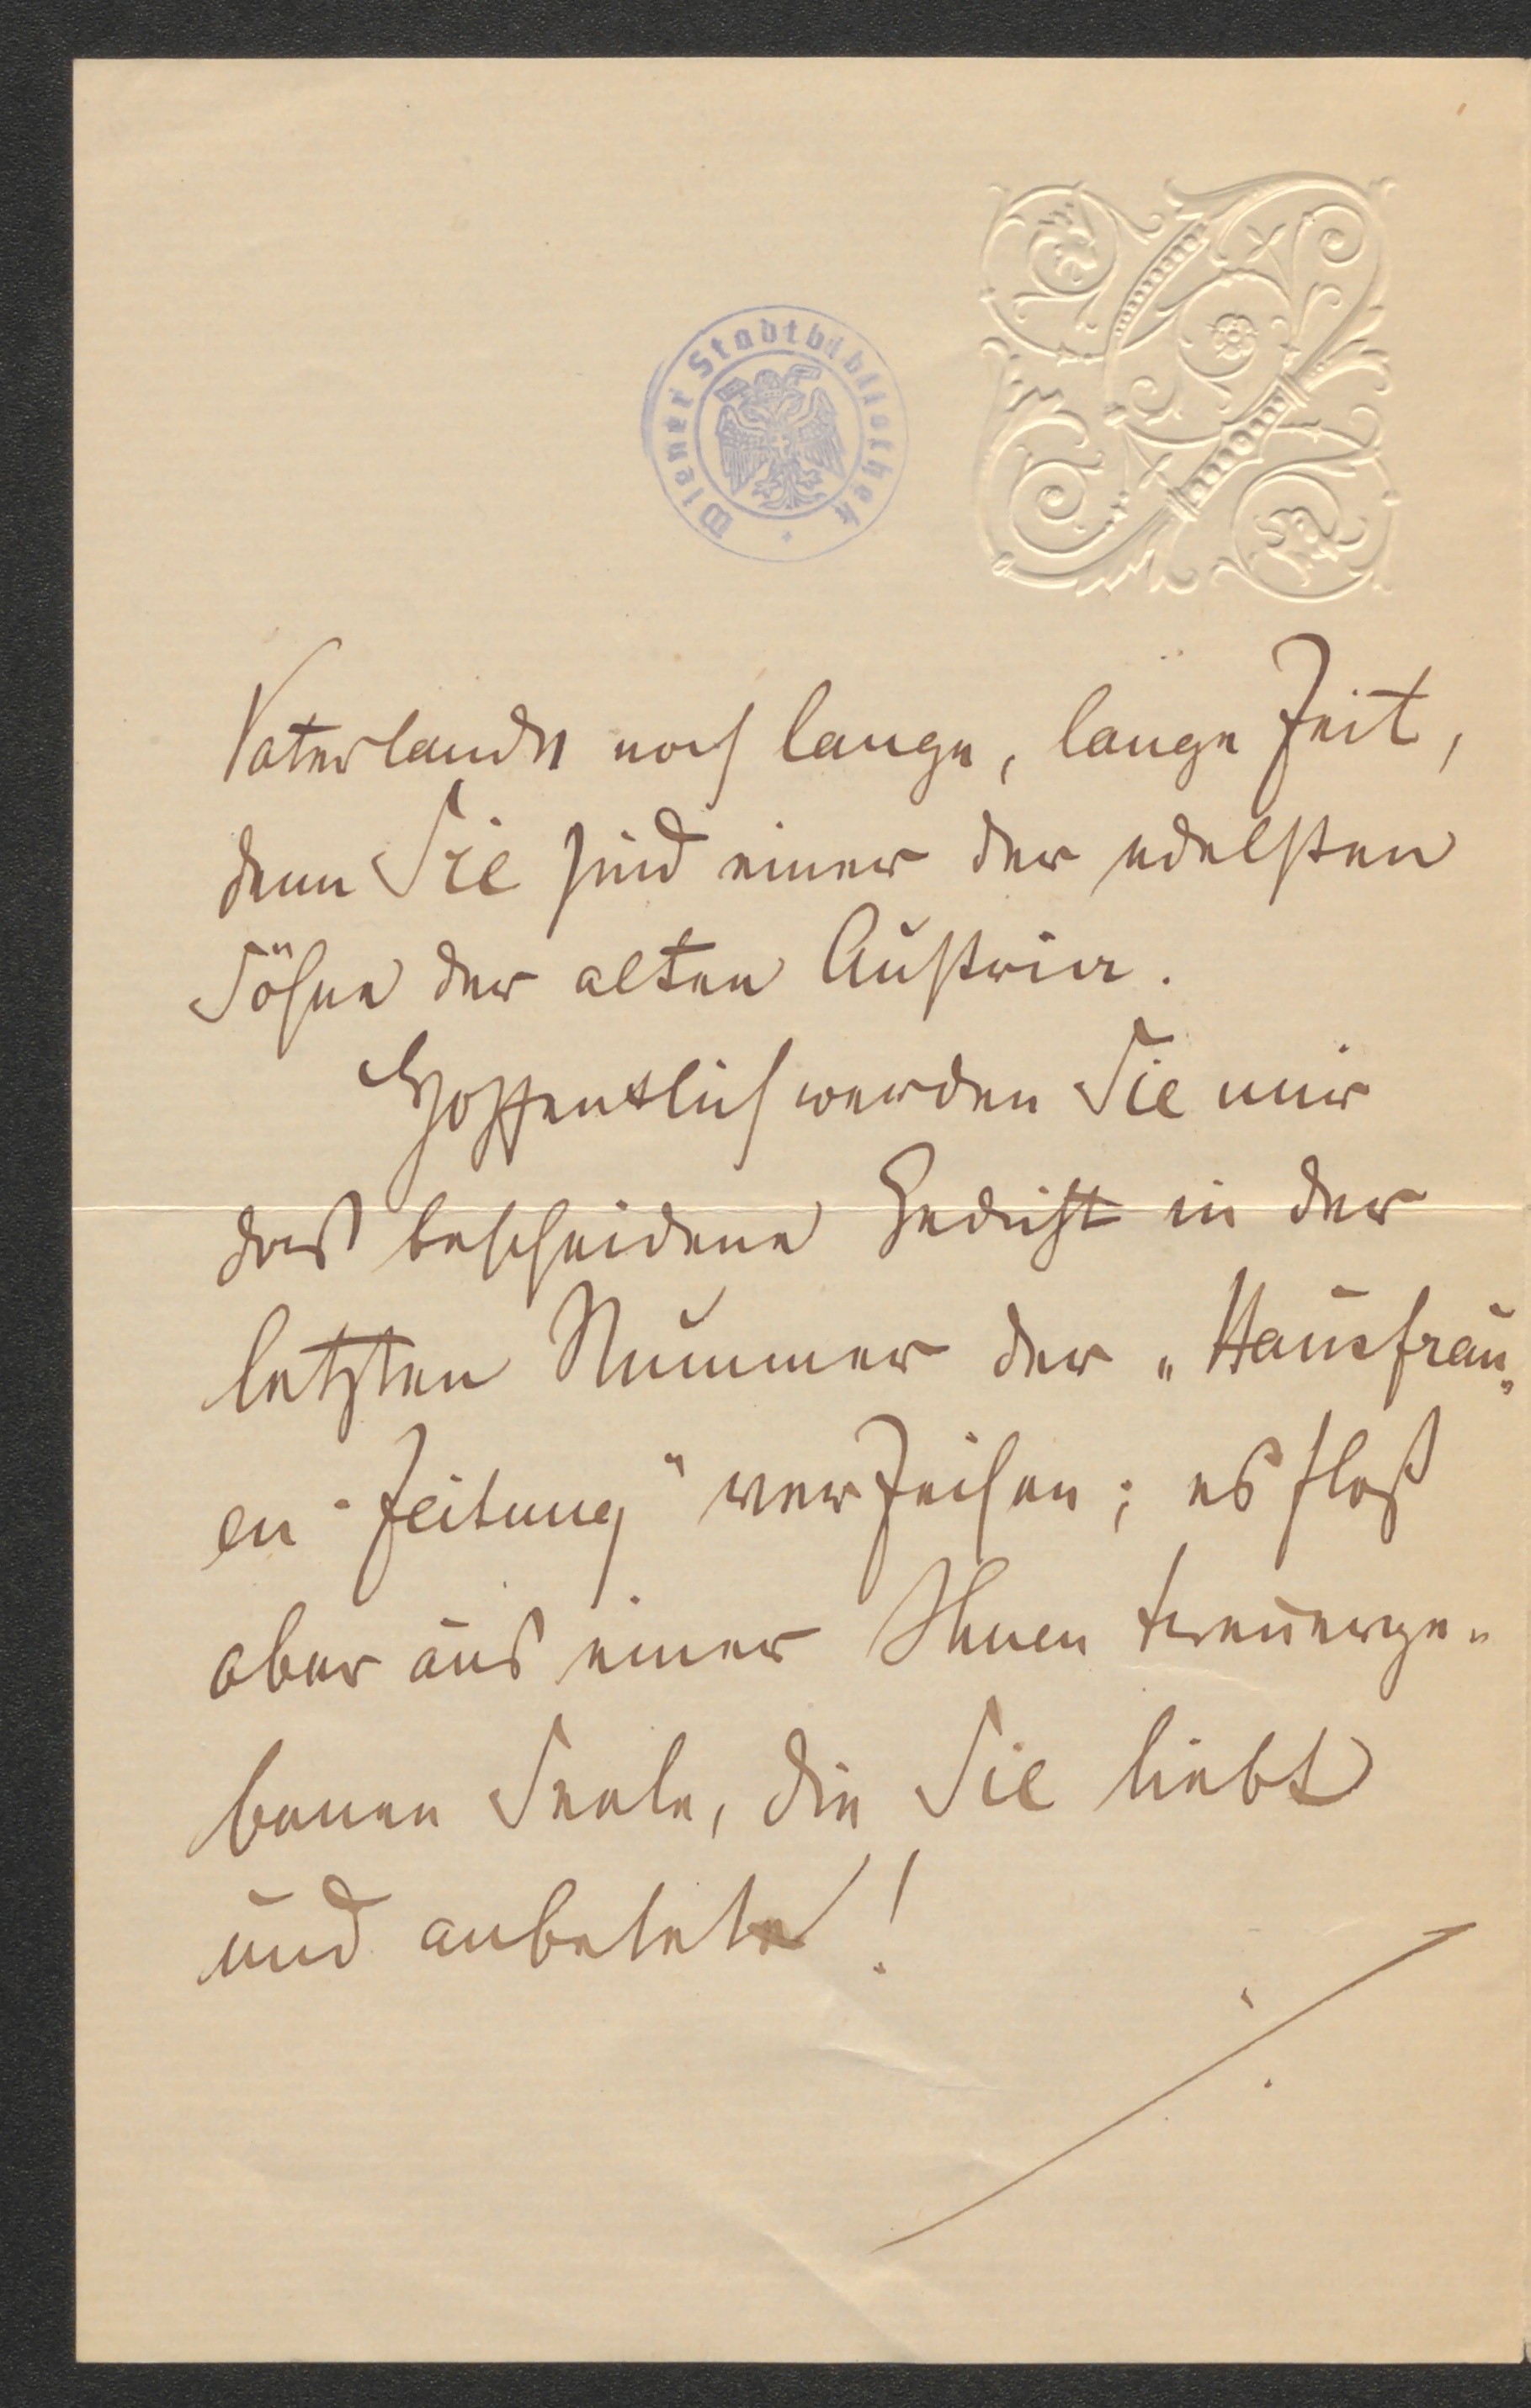 Wiener Stadtbibliothek
Vaterlandes noch lange, lange Zeit,
denn Sie sind einer der edelsten
Söhne der alten Austria.
Hoffentlich werden Sie mir
das bescheidene Gedicht in der
letzten Nummer der „Hausfrau„
en-Zeitung" verzeihen; es floß
aber aus einer Ihnen treuerge„
benen Seele, die Sie liebt
und anbetet!